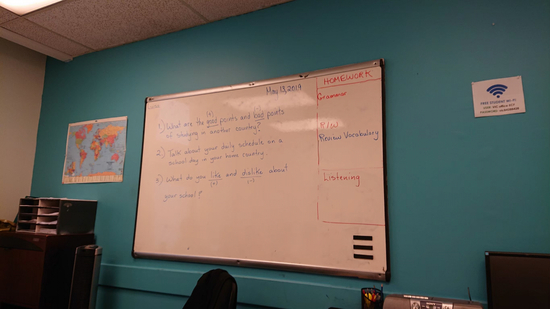 May 13, 2019
HOMEWORK
1) What are the good points and bad points
(+) (-)
of studying in another country?
2) Talk about your daily schedule on a
school day in your home country.
3) What do you like and dislike about
(+) (-)
your school?
Grammar
R/W
Review Vocabulary
Listening
FREE STUDENT WI-FI